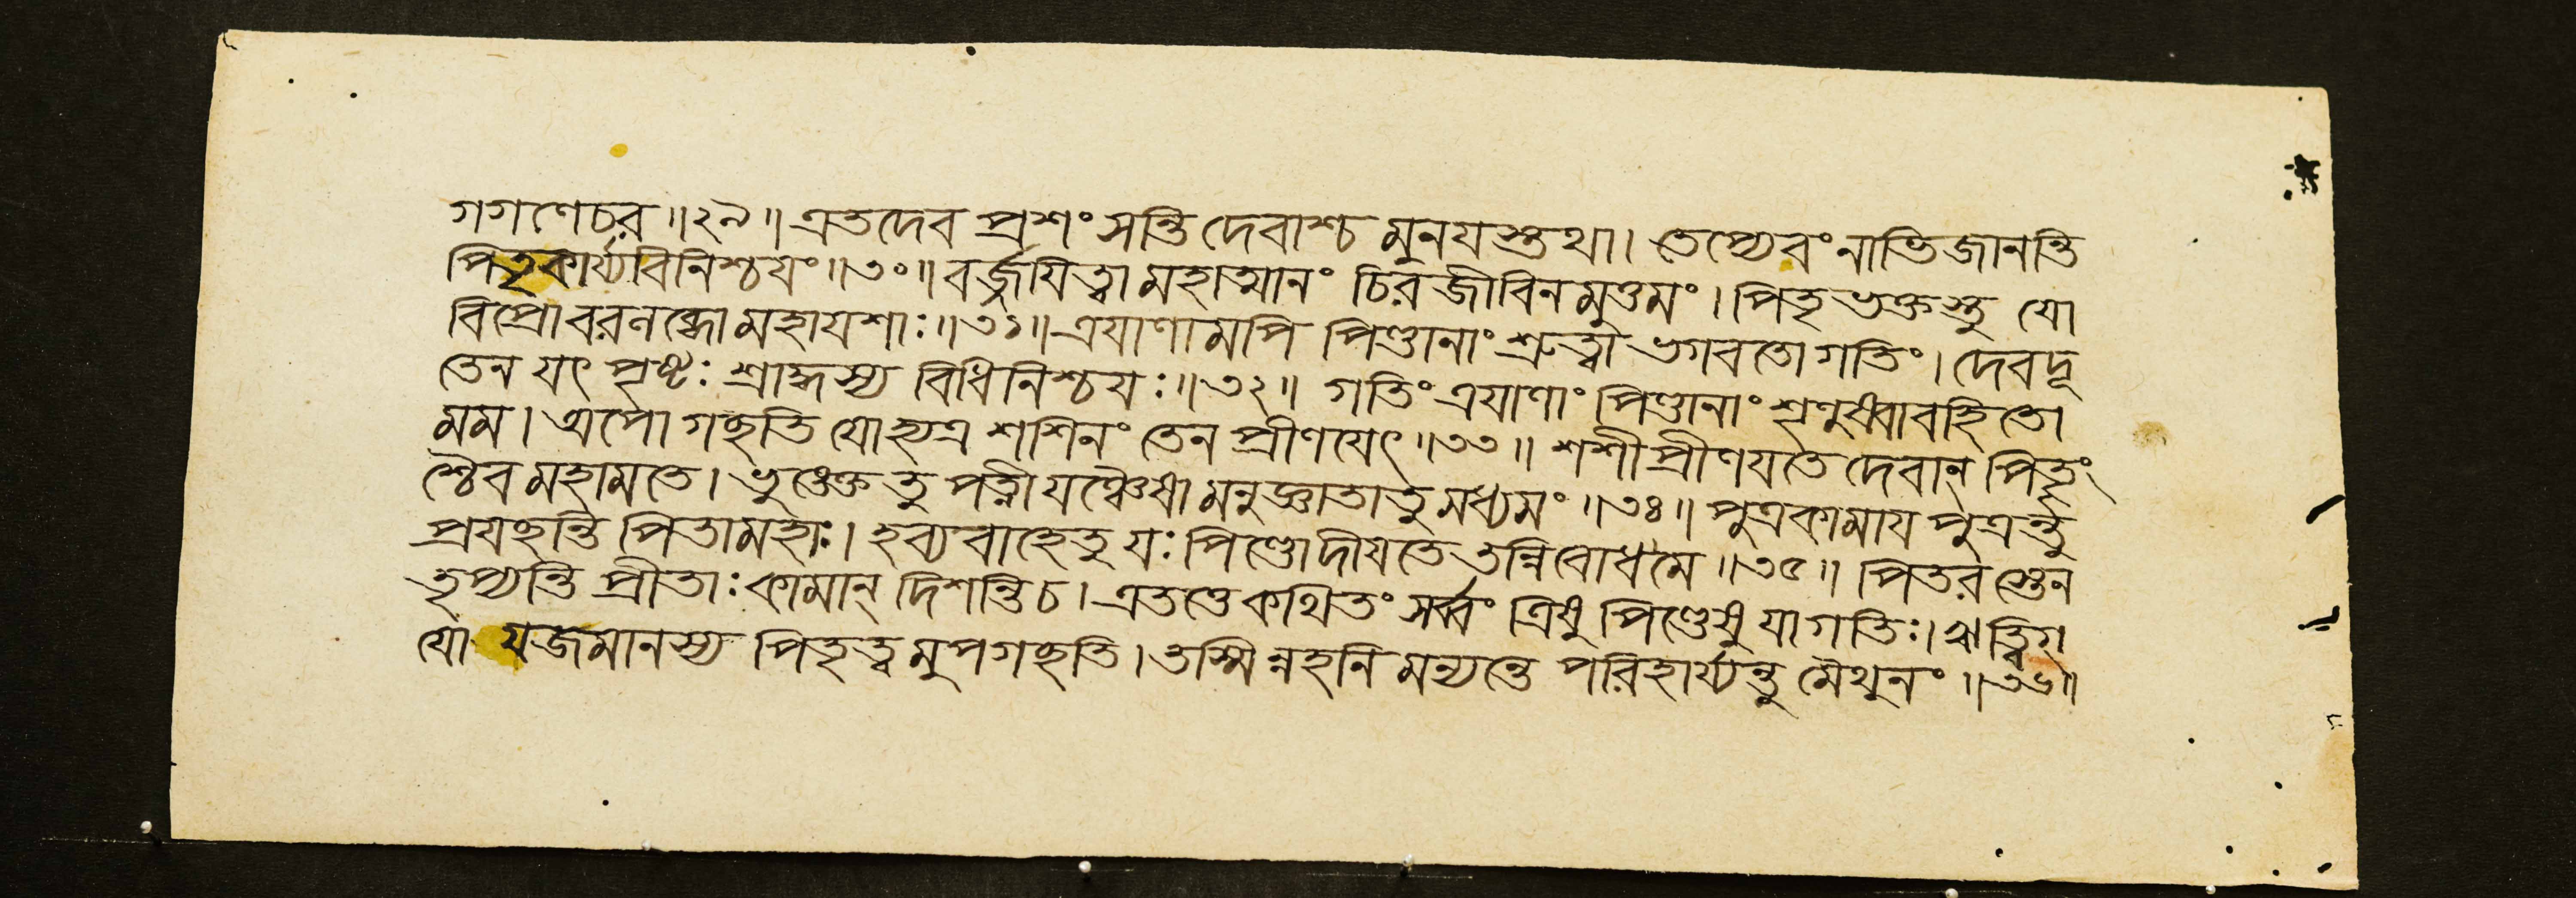 গগণেচর॥২৯॥এতদেব প্রশংসন্তি দেবাশ্চ মুনযস্তথা। তেপ্যেবং নাভিজানন্তি
পিতৃকার্য্যবিনিশ্চযং॥৩০॥বর্জ্জযিত্বা মহাত্মানং চিরজীবিনমুত্তমং। পিতৃভক্তস্তু যো
বিপ্রো বরলব্ধো মহাযশাঃ॥৩১॥ত্রযাণামপি পিণ্ডানাং শ্রুত্বা ভগবতো গতিং। দেবদূ
তেন যৎ পৃষ্টঃ শ্রাদ্ধস্য বিধিনিশ্চযঃ॥৩২॥ গতিং ত্রযাণাং পিণ্ডানাং শৃণুষ্বাবহিতো
মম। অপো গচ্ছতি যোহ্যত্র শশিনং তেন প্রীণযেৎ॥৩৩॥ শশী প্রীণযতে দেবান্ পিতৃং
শ্চৈব মহামতে। ভুঙেক্ত তু পত্নী যঞ্চৈষামনুজ্ঞাতা তু মধ্যমং॥৩৪॥ পুত্রকামায পুত্রন্তু
প্রযচ্ছন্তি পিতামহাঃ। হব্যবাহেতু যঃ পিণ্ডো দীযতে তন্নিবোধ মে॥৩৫॥ পিতরস্তেন
তৃপ্যন্তি প্রীতাঃ কামান্ দিশন্তি চ। এতত্তে কথিতং সর্ব্বং ত্রিষু পিণ্ডেষু যা গতিঃ। ঋত্বিগ্
যো যজমানস্য পিতৃত্বমুপগচ্ছতি। তস্মিন্নহনি মন্যন্তে পরিহার্য্যন্তু মৈথুনং॥৩৬॥